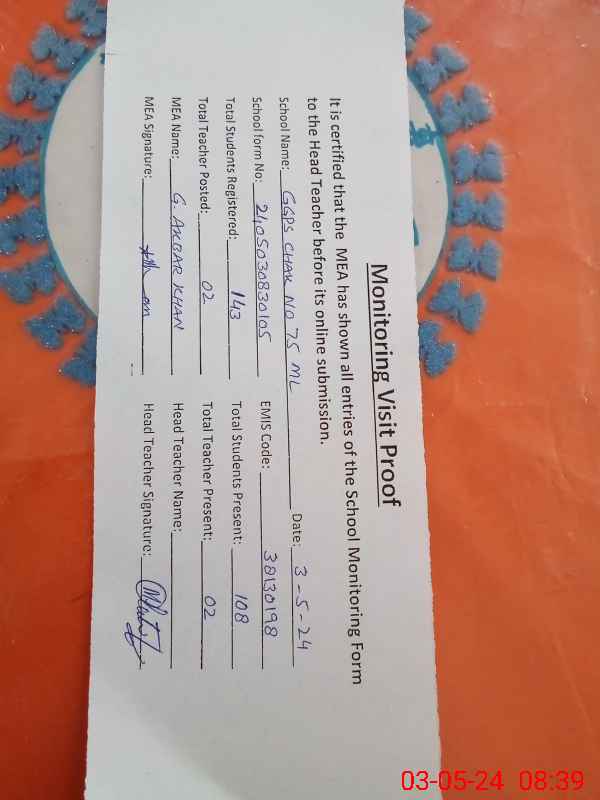 Monitoring Visit Proof
It is certified that the MEA has shown all entries of the School Monitoring Form
to the Head Teacher before its online submission.
School Name: GGPS CHAK NO 75 ML Date: 3-5-24
School form No: 2405030830105 EMIS Code: 38130198
Total Students Registered: 143 Total Students Present: 108
Total Teacher Posted: 02 Total Teacher Present: 02
MEA Name: G. AKBAR KHAN Head Teacher Name:
MEA Signature: Head Teacher Signature:
03-05-24 08:39